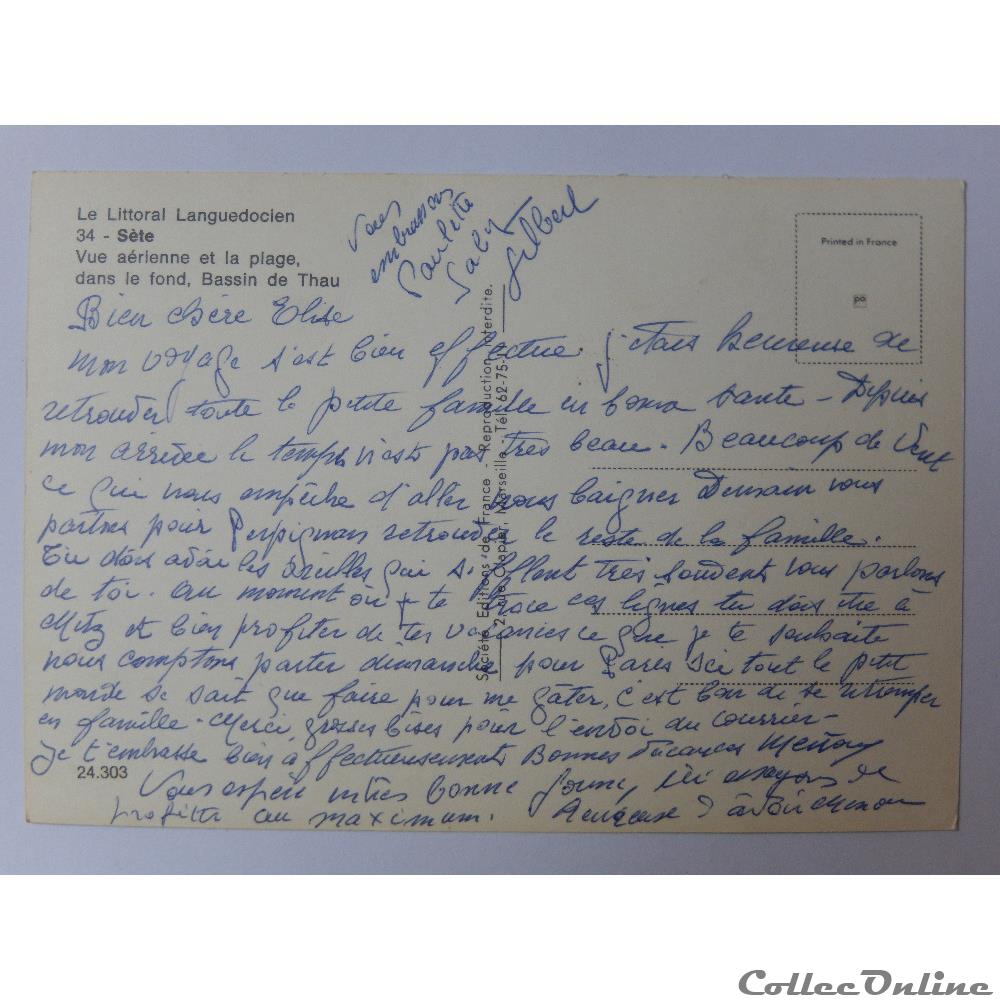 Le Littoral Languedocien
34 - Sète
Vue aérienne et la plage,
dans le fond, Bassin de Thau
Printed in France
Vous
embrassons
Paulette
Gaby
Gilbert
Société Editions de France - Reproduction interdite.
2, rue Clapier, Marseille - Tél. 62-75-
Bien chère Elise
mon voyage s'est bien effectué. j'étais heureuse de
retrouver toute la petite famille en bonne santé - Depuis
mon arrivée le temps n'est pas très beau - Beaucoup de vent
ce qui nous empêche d'aller nous baigner Demain nous
partons pour Perpignan retrouver le reste de la famille.
Tu dois avoir les oreilles qui sifflent très souvent nous parlons
de toi. Au moment où je te trace ces lignes tu dois être à
Metz et bien profiter de tes vacances ce que je te souhaite
nous comptons partir dimanche pour Paris ici tout le petit
monde ne sait que faire pour me gâter, c'est bon de se retremper
en famille - Merci, grosses bises pour l'envoi du courrier -
je t'embrasse bien affectueusement Bonnes Vacances
24.303
Vous espère bonne forme, ici essayons de
profiter au maximum. heureuse d'avoir
CollecOnline